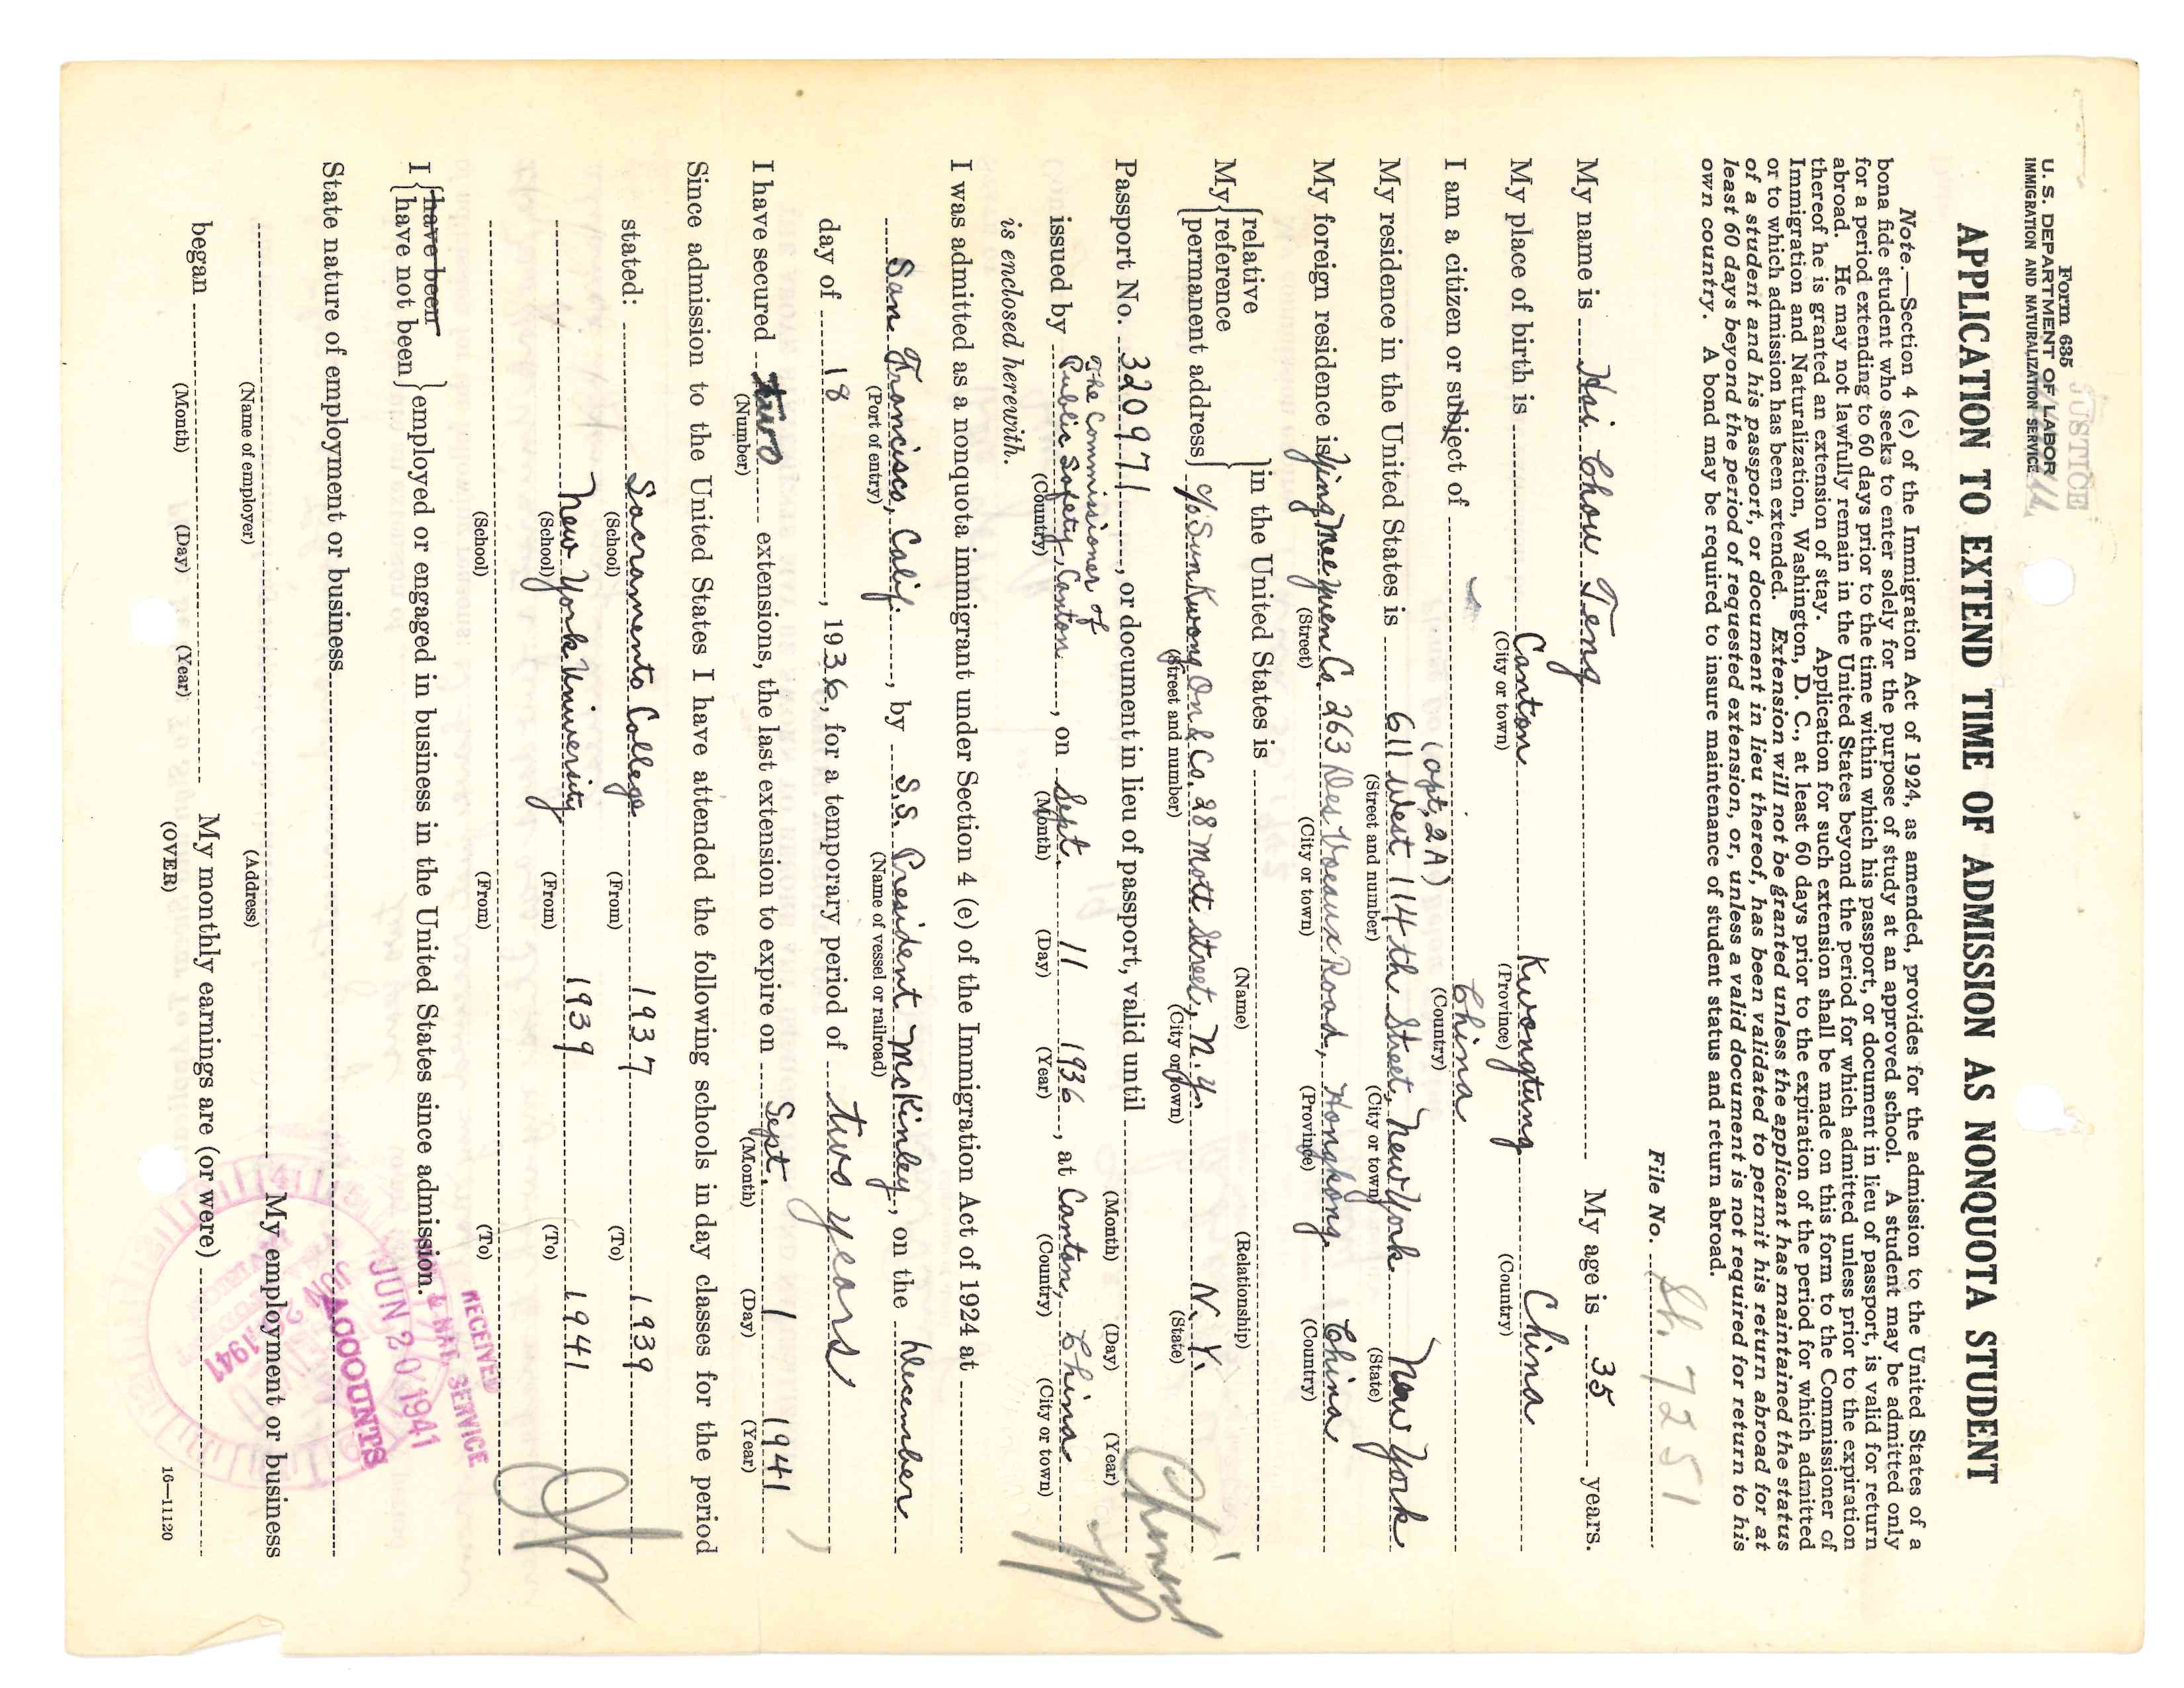 JUSTICE
Form 635
U. S. DEPARTMENT OF LABOR
IMMIGRATION AND NATURALIZATION SERVICE
APPLICATION TO EXTEND TIME OF ADMISSION AS NONQUOTA STUDENT
Note.—Section 4 (e) of the Immigration Act of 1924, as amended, provides for the admission to the United States of a
bona fide student who seeks to enter solely for the purpose of study at an approved school. A student may be admitted only
for a period extending to 60 days prior to the time within which his passport, or document in lieu of passport, is valid for return
abroad. He may not lawfully remain in the United States beyond the period for which admitted unless prior to the expiration
thereof he is granted an extension of stay. Application for such extension shall be made on this form to the Commissioner of
Immigration and Naturalization, Washington, D. C., at least 60 days prior to the expiration of the period for which admitted
or to which admission has been extended. Extension will not be granted unless the applicant has maintained the status
of a student and his passport, or document in lieu thereof, has been validated to permit his return abroad for at
least 60 days beyond the period of requested extension, or, unless a valid document is not required for return to his
own country. A bond may be required to insure maintenance of student status and return abroad.
File No. St. 7251
My name is Hsi Chou Teng My age is 35 years.
My place of birth is Canton Kwongtung China
(City or town) (Province) (Country)
I am a citizen or subject of China
(Country)
(apt. 2A)
My residence in the United States is 611 West 114th Street, New York New York
(Street and number) (City or town) (State)
My foreign residence is Ying Mee Yuen Co. 263 Des Voeaux Road, Hongkong. China
(Street) (City or town) (Province) (Country)
My relative reference permanent address in the United States is
(Name) (Relationship)
c/o Sun Kwong On & Co. 28 Mott Street, N.Y. N.Y.
(Street and number) (City or town) (State)
Chinese
Passport No. 320971, or document in lieu of passport, valid until
(Month) (Day) (Year)
PP
The Commissioner of
issued by Public Safety, Canton, on Sept. 11 1936, at Canton, China
(Country) (Month) (Day) (Year) (Country) (City or town)
is enclosed herewith.
I was admitted as a nonquota immigrant under Section 4 (e) of the Immigration Act of 1924 at
San Francisco, Calif., by S.S. President McKinley, on the December
(Port of entry) (Name of vessel or railroad)
day of 18, 1936, for a temporary period of two years
I have secured two extensions, the last extension to expire on Sept. 1 1941
(Number) (Month) (Day) (Year)
Since admission to the United States I have attended the following schools in day classes for the period
stated: Sacramento College 1937 1939
(School) (From) (To)
New York University 1939 1941
(School) (From) (To)
(School) (From) (To)
RECEIVED
& NAT. SERVICE
JUN 20 1941
ACCOUNTS
I have been have not been employed or engaged in business in the United States since admission.
State nature of employment or business
My employment or business
(Name of employer) (Address)
began My monthly earnings are (or were)
(Month) (Day) (Year)
(OVER)
16—11120